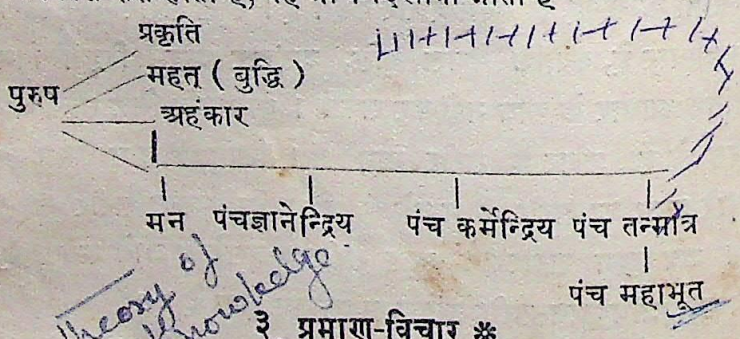 प्रकृति
महत् ( बुद्धि )
पुरुष
अहंकार
मन पंचज्ञानेन्द्रिय पंच कर्मेन्द्रिय पंच तन्मात्र
पंच महाभूत
Theory of
Knowledge
३ प्रमाण-विचार *